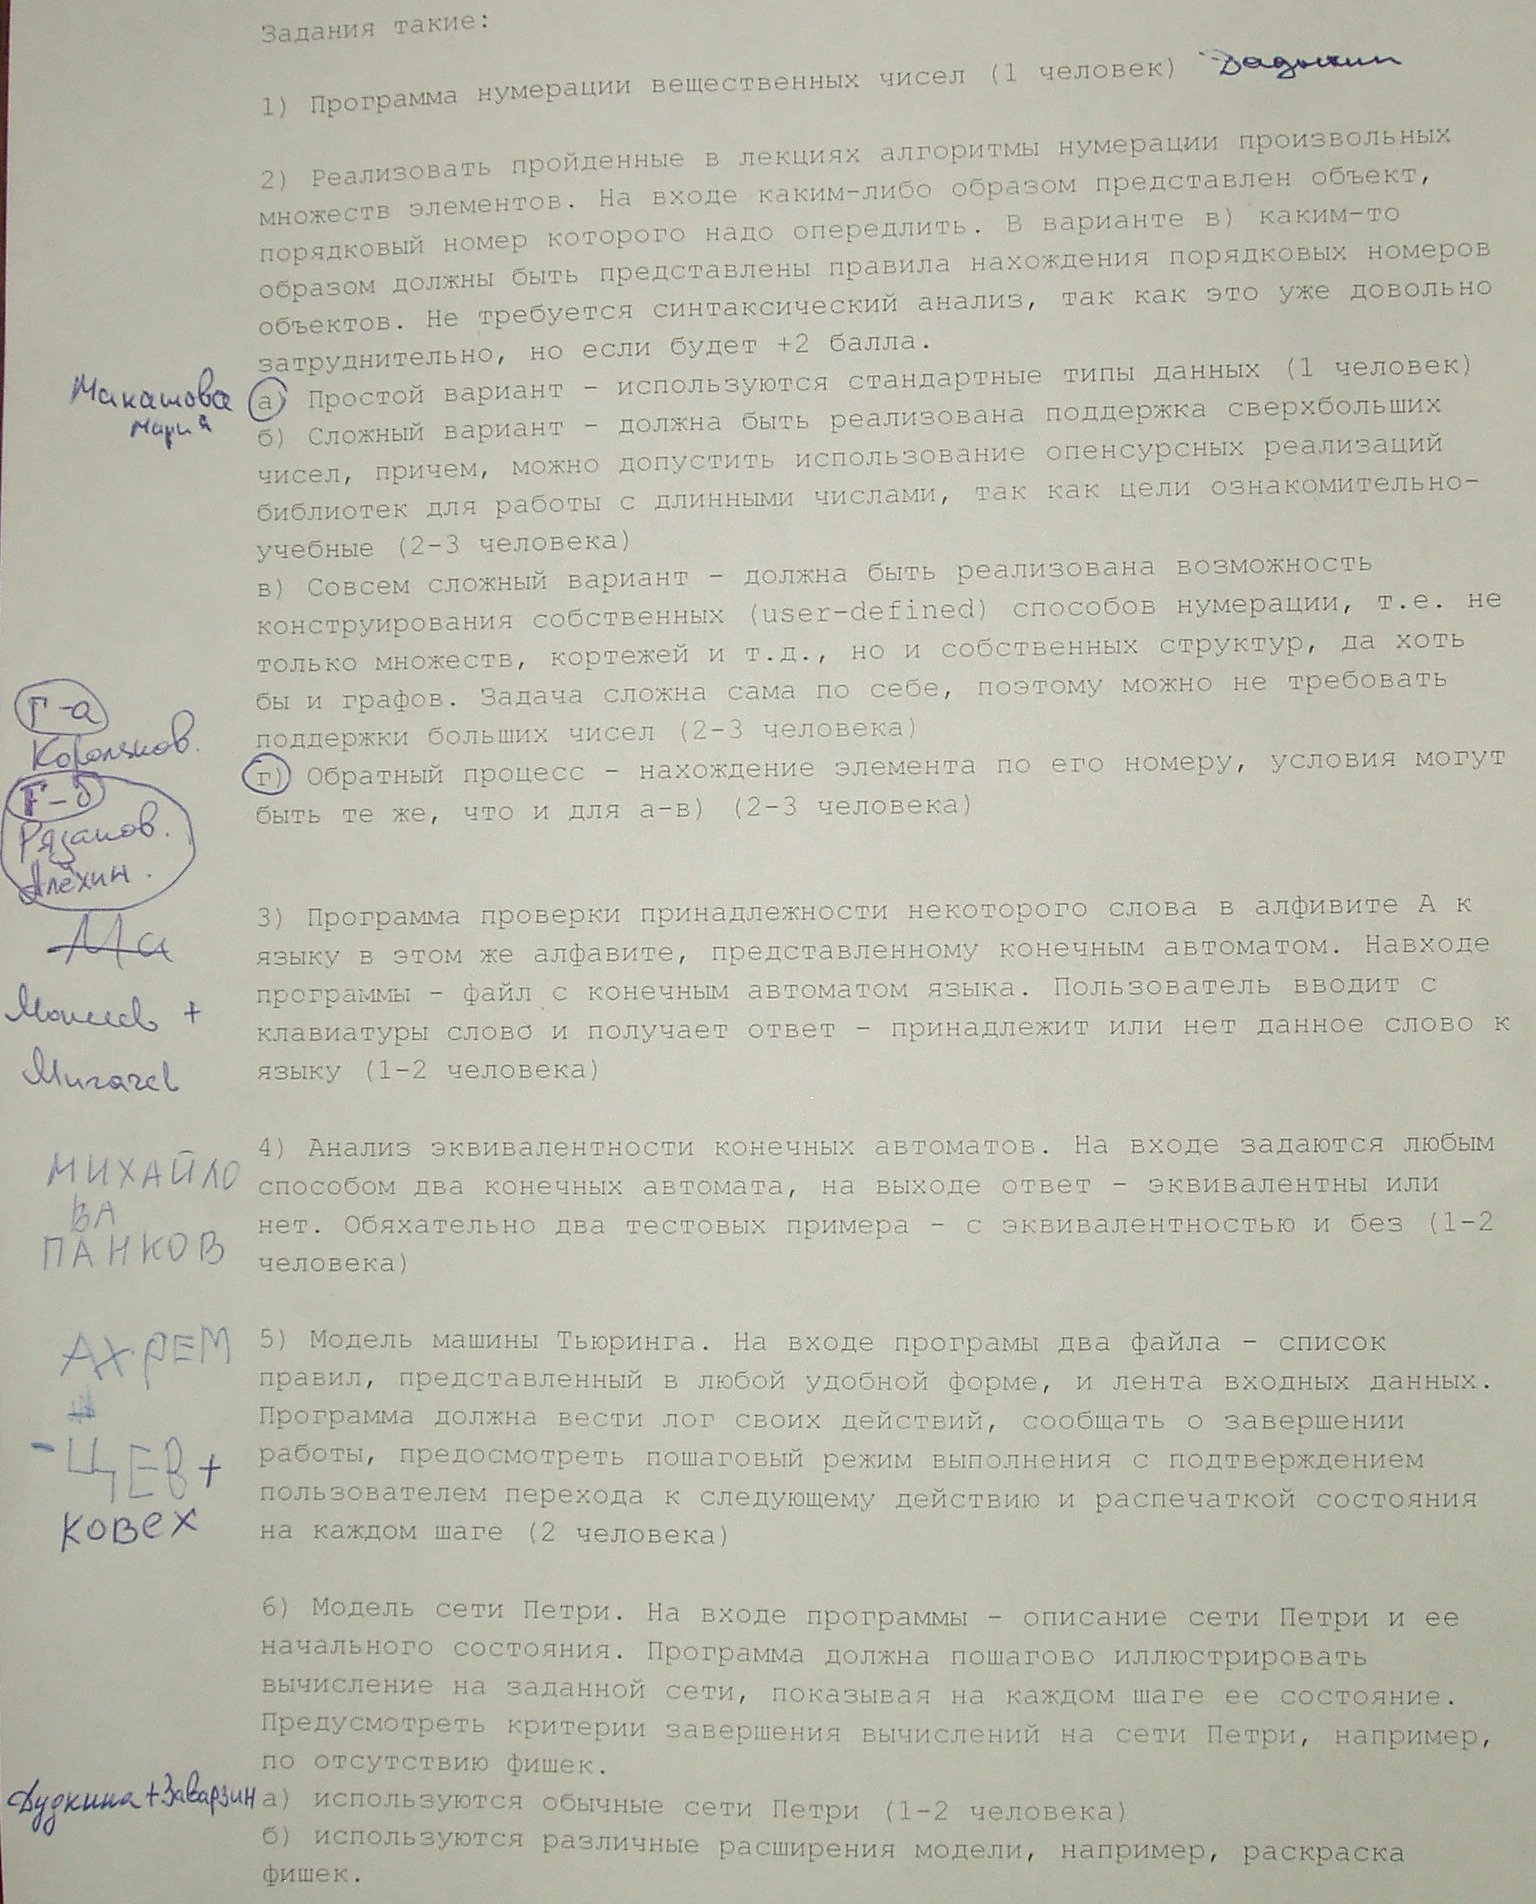 Задания такие:
1) Программа нумерации вещественных чисел (1 человек)
2) Реализовать пройденные в лекциях алгоритмы нумерации произвольных
множеств элементов. На входе каким-либо образом представлен объект,
порядковый номер которого надо опередлить. В варианте в) каким-то
образом должны быть представлены правила нахождения порядковых номеров
объектов. Не требуется синтаксический анализ, так как это уже довольно
затруднительно, но если будет +2 балла.
Макашова а) Простой вариант - используются стандартные типы данных (1 человек)
Мария
б) Сложный вариант - должна быть реализована поддержка сверхбольших
чисел, причем, можно допустить использование опенсурсных реализаций
библиотек для работы с длинными числами, так как цели ознакомительно-
учебные (2-3 человека)
в) Совсем сложный вариант - должна быть реализована возможность
конструирования собственных (user-defined) способов нумерации, т.е. не
только множеств, кортежей и т.д., но и собственных структур, да хоть
бы и графов. Задача сложна сама по себе, поэтому можно не требовать
поддержки больших чисел (2-3 человека)
Г-а
г) Обратный процесс - нахождение элемента по его номеру, условия могут
быть те же, что и для а-в) (2-3 человека)
Г-б
Рязанов.
Алёхин.
3) Программа проверки принадлежности некоторого слова в алфивите А к
языку в этом же алфавите, представленному конечным автоматом. Навходе
программы - файл с конечным автоматом языка. Пользователь вводит с
клавиатуры слово и получает ответ - принадлежит или нет данное слово к
языку (1-2 человека)
Ма
Моисеев +
Мигачев
4) Анализ эквивалентности конечных автоматов. На входе задаются любым
способом два конечных автомата, на выходе ответ - эквивалентны или
нет. Обяхательно два тестовых примера - с эквивалентностью и без (1-2
человека)
МИХАЙЛО
ВА
ПАНКОВ
5) Модель машины Тьюринга. На входе програмы два файла - список
правил, представленный в любой удобной форме, и лента входных данных.
Программа должна вести лог своих действий, сообщать о завершении
работы, предосмотреть пошаговый режим выполнения с подтверждением
пользователем перехода к следующему действию и распечаткой состояния
на каждом шаге (2 человека)
АХРЕМ
-ЦЕВ +
КОВЕХ
6) Модель сети Петри. На входе программы - описание сети Петри и ее
начального состояния. Программа должна пошагово иллюстрировать
вычисление на заданной сети, показывая на каждом шаге ее состояние.
Предусмотреть критерии завершения вычислений на сети Петри, например,
по отсутствию фишек.
Дудкина + Заварзин а) используются обычные сети Петри (1-2 человека)
б) используются различные расширения модели, например, раскраска
фишек.